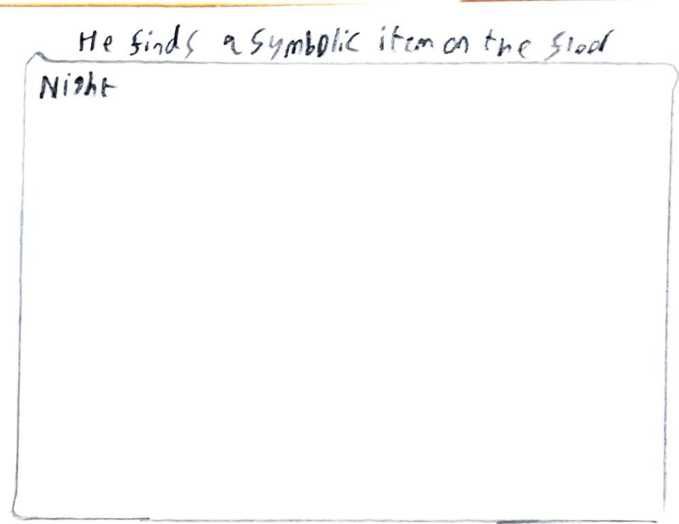 He finds a symbolic item on the floor
Night